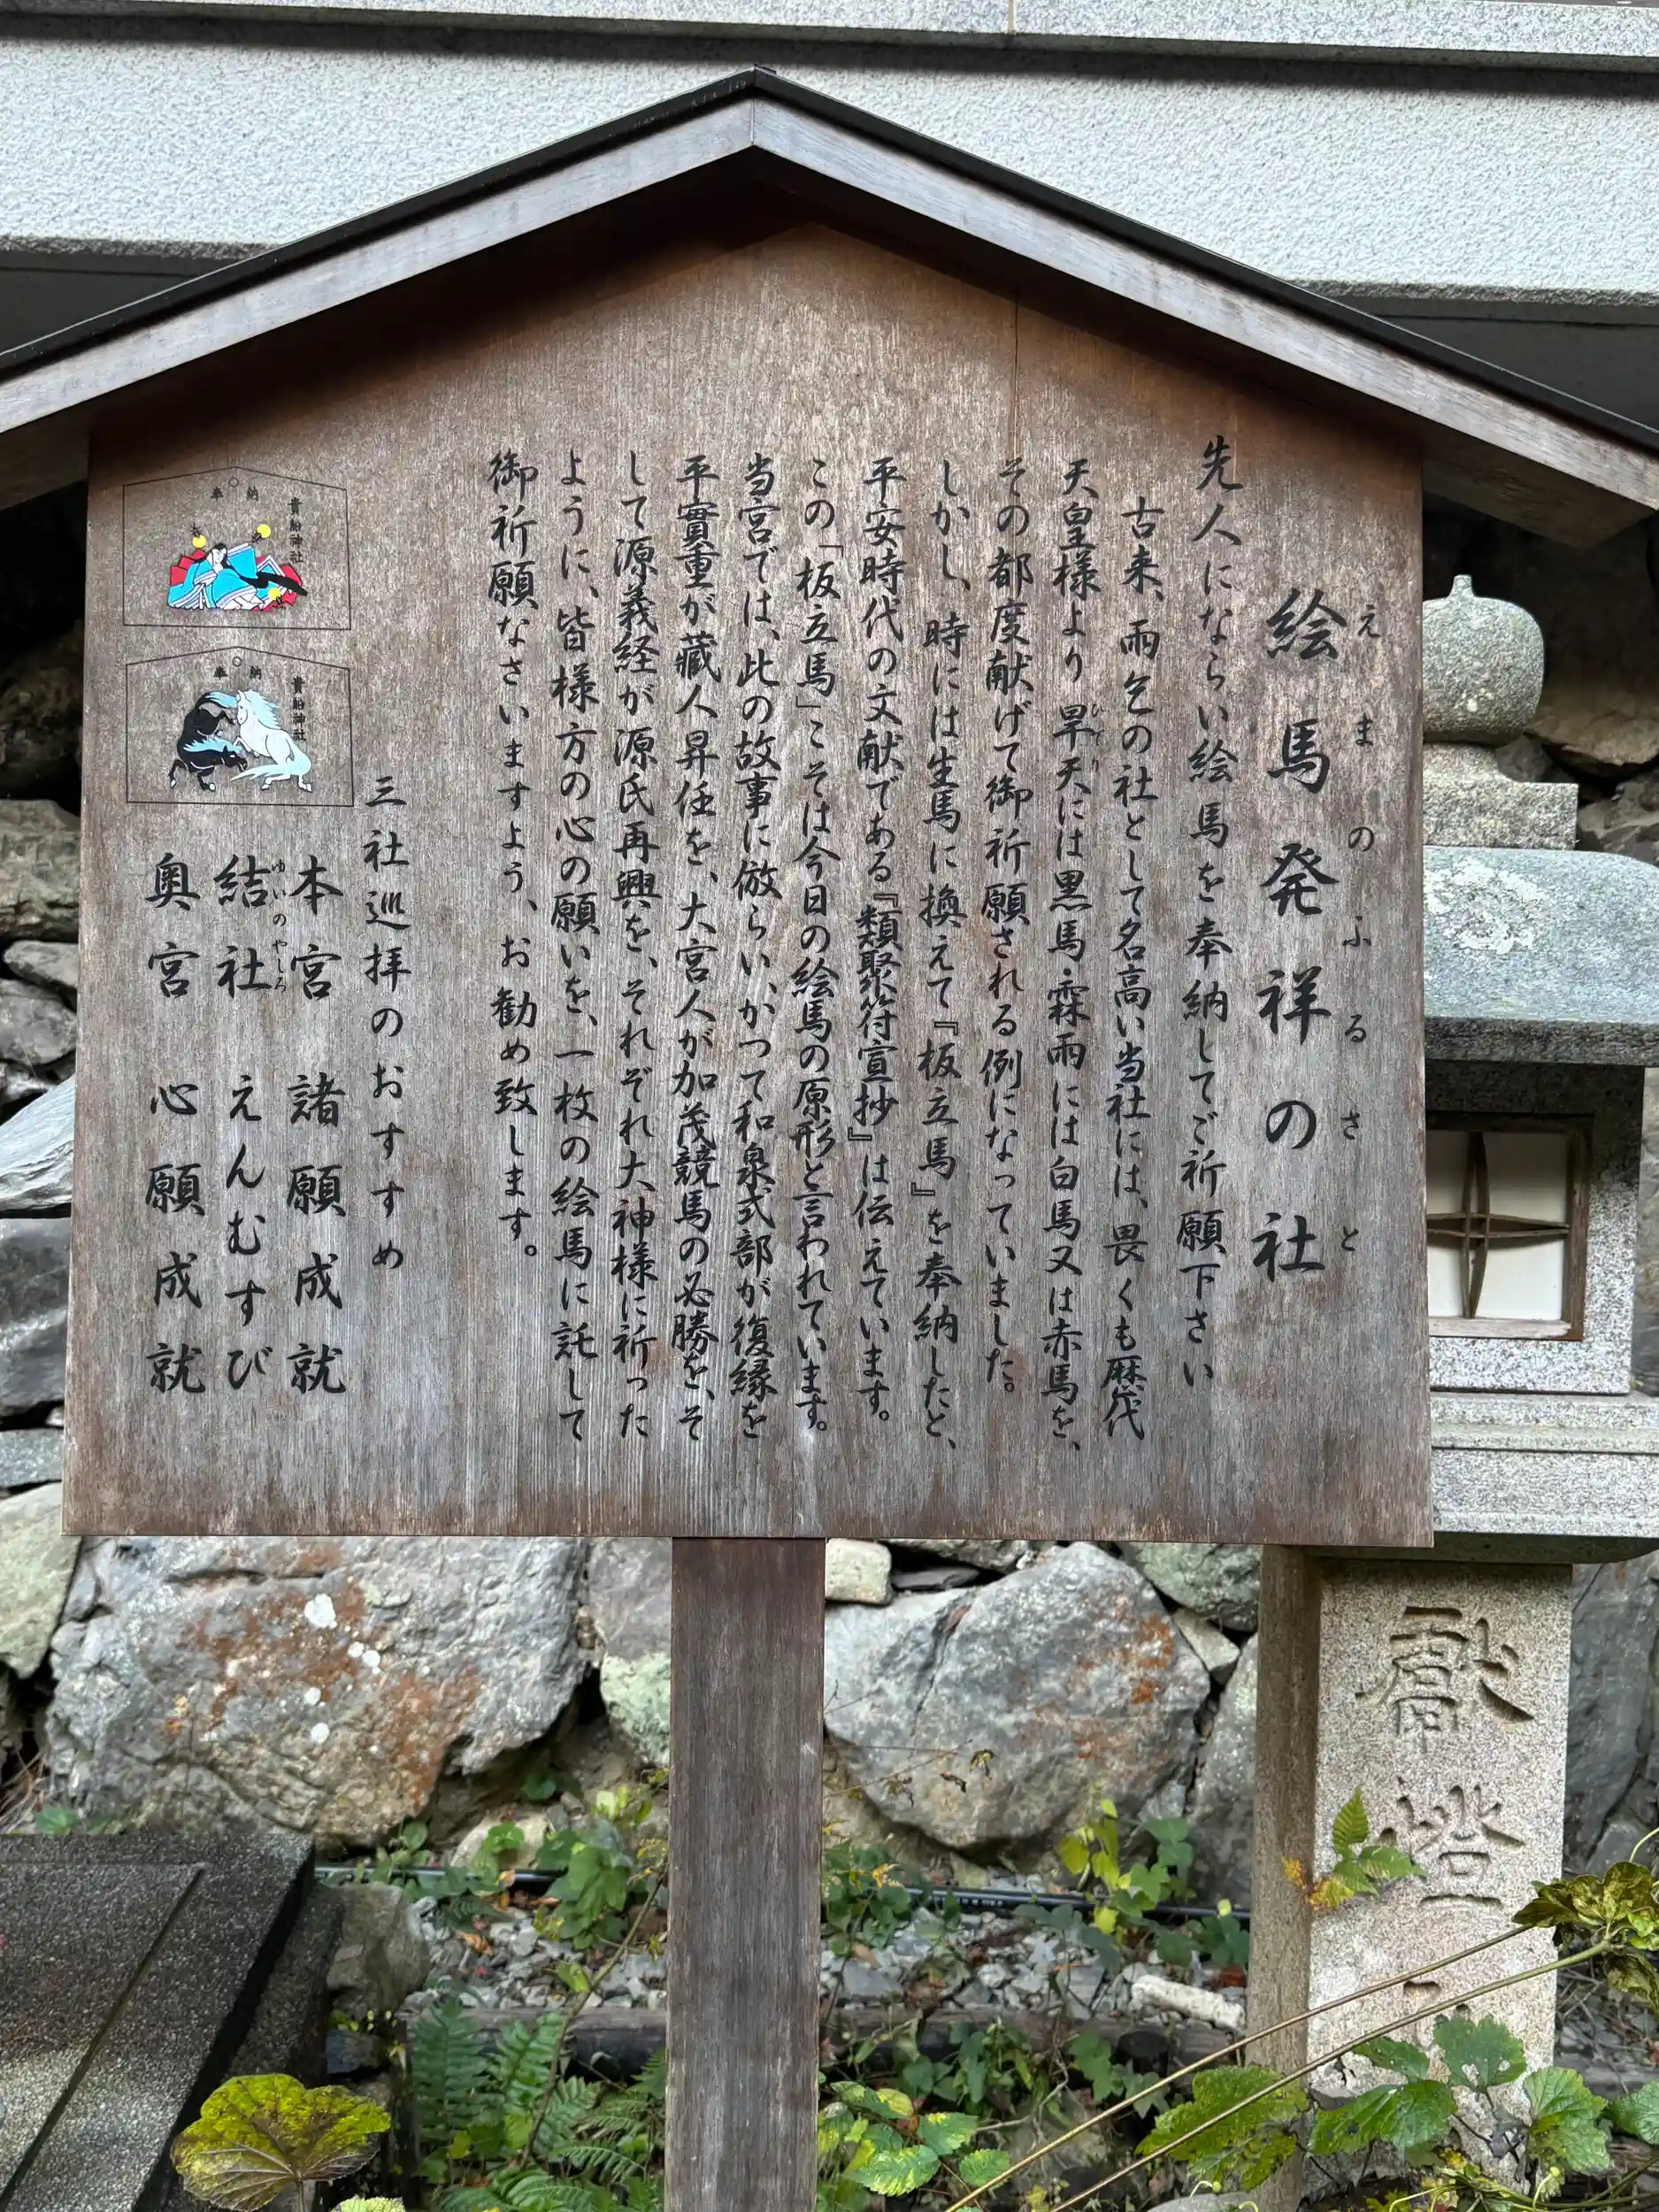 絵馬発祥の社
えまのふるさと
先人にならい絵馬を奉納してご祈願下さい
古来、雨乞の社として名高い当社には、畏くも歴代
天皇様より旱天には黒馬霖雨には白馬又は赤馬を、
ひでり
その都度献げて御祈願される例になっていました。
しかし、時には生馬に換えて『板立馬』を奉納したと、
平安時代の文献である『類聚符宣抄』は伝えています。
この「板立馬」こそは今日の絵馬の原形と言われています。
当宮では、此の故事に倣らい、かつて和泉式部が復縁を
平實重が蔵人昇任を、大宮人が加茂競馬の必勝を、そ
して源義経が源氏再興を、それぞれ大神様に祈った
ように、皆様方の心の願いを、一枚の絵馬に託して
御祈願なさいますよう、お勧め致します。
三社巡拝のおすすめ
本宮 諸願成就
結社 えんむすび
ゆいのやしろ
奥宮 心願成就
貴船神社
奉納
貴船神社
奉納
献燈